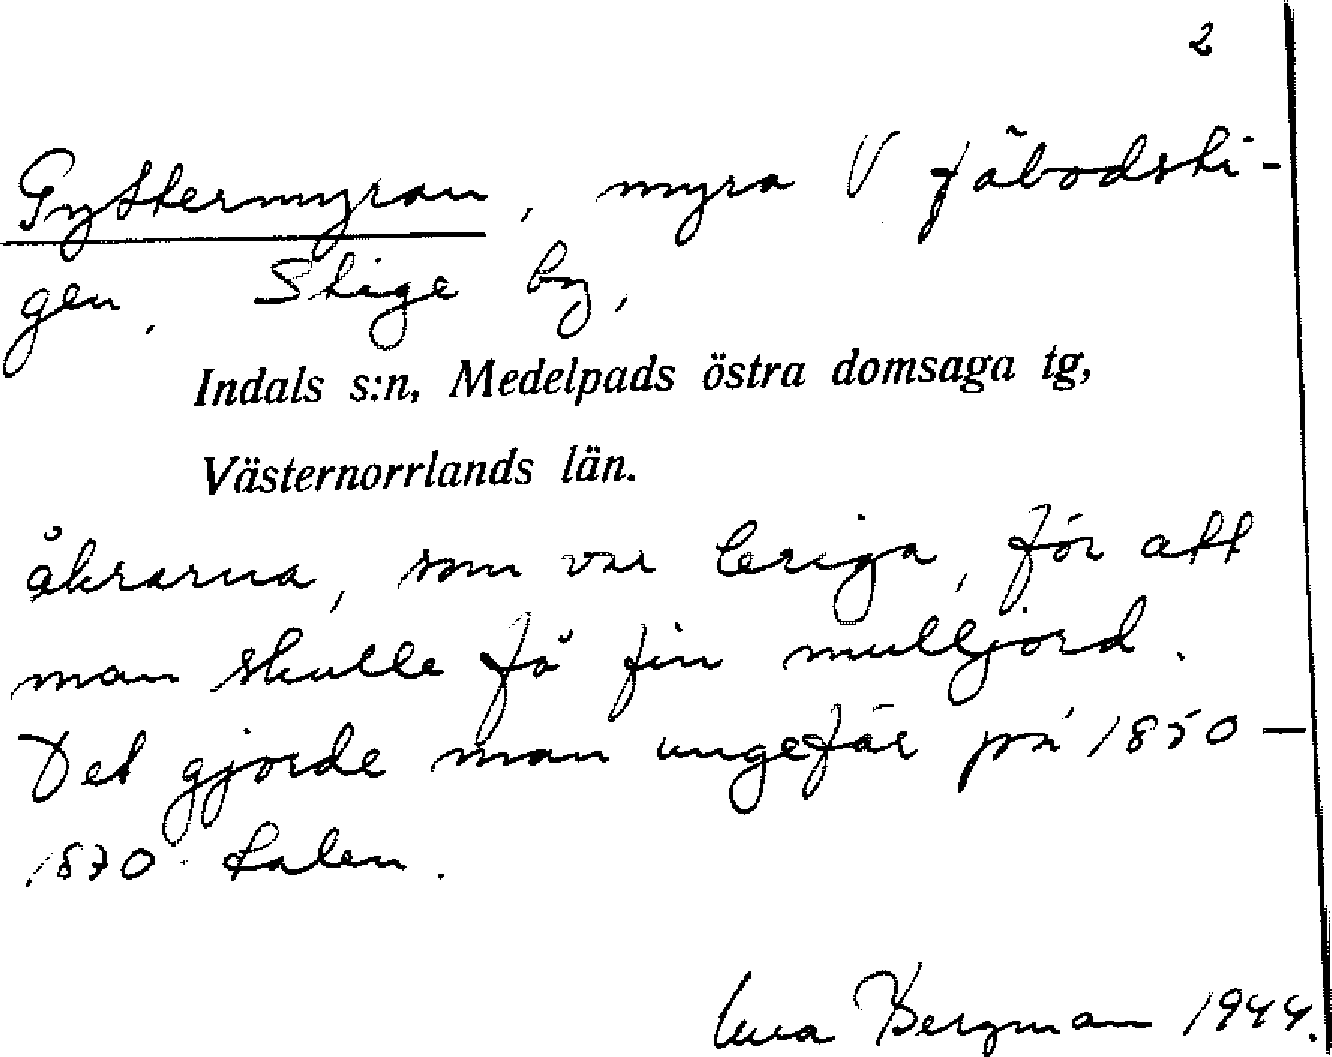 2
Gyttermyran, myra V fäbodsti-
gen, Stige by,
Indals s:n, Medelpads östra domsaga tg,
Västernorrlands län.
åkrarna, som var leriga, för att
man skulle få fin mulljord.
Det gjorde man ungefär på 1850 –
1870-talen.
Bergman 1944.